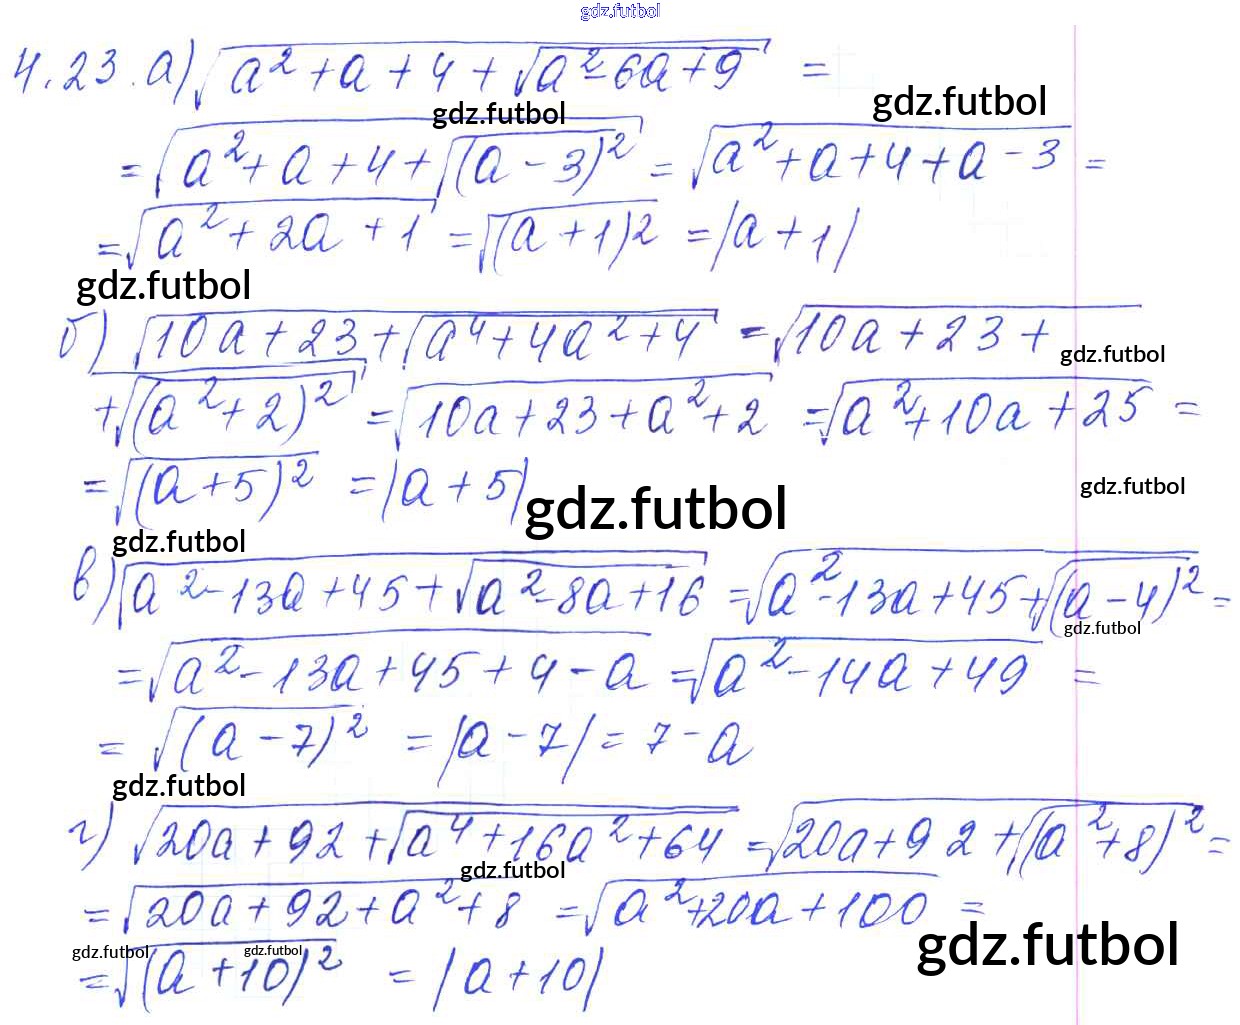 gdz.futbol
4.23. а) √(a² + a + 4 + √(a² - 6a + 9)) =
gdz.futbol gdz.futbol
= √(a² + a + 4 + √((a - 3)²)) = √(a² + a + 4 + a - 3) =
= √(a² + 2a + 1) = √((a + 1)²) = |a + 1|
gdz.futbol
б) √(10a + 23 + √(a⁴ + 4a² + 4)) = √(10a + 23 +
gdz.futbol
+ √((a² + 2)²)) = √(10a + 23 + a² + 2) = √(a² + 10a + 25) =
= √((a + 5)²) = |a + 5|
gdz.futbol gdz.futbol
gdz.futbol
в) √(a² - 13a + 45 + √(a² - 8a + 16)) = √(a² - 13a + 45 + √((a - 4)²)) =
gdz.futbol
= √(a² - 13a + 45 + 4 - a) = √(a² - 14a + 49) =
= √((a - 7)²) = |a - 7| = 7 - a
gdz.futbol
г) √(20a + 92 + √(a⁴ + 16a² + 64)) = √(20a + 92 + √((a² + 8)²)) =
gdz.futbol
= √(20a + 92 + a² + 8) = √(a² + 20a + 100) =
gdz.futbol gdz.futbol gdz.futbol
= √((a + 10)²) = |a + 10|